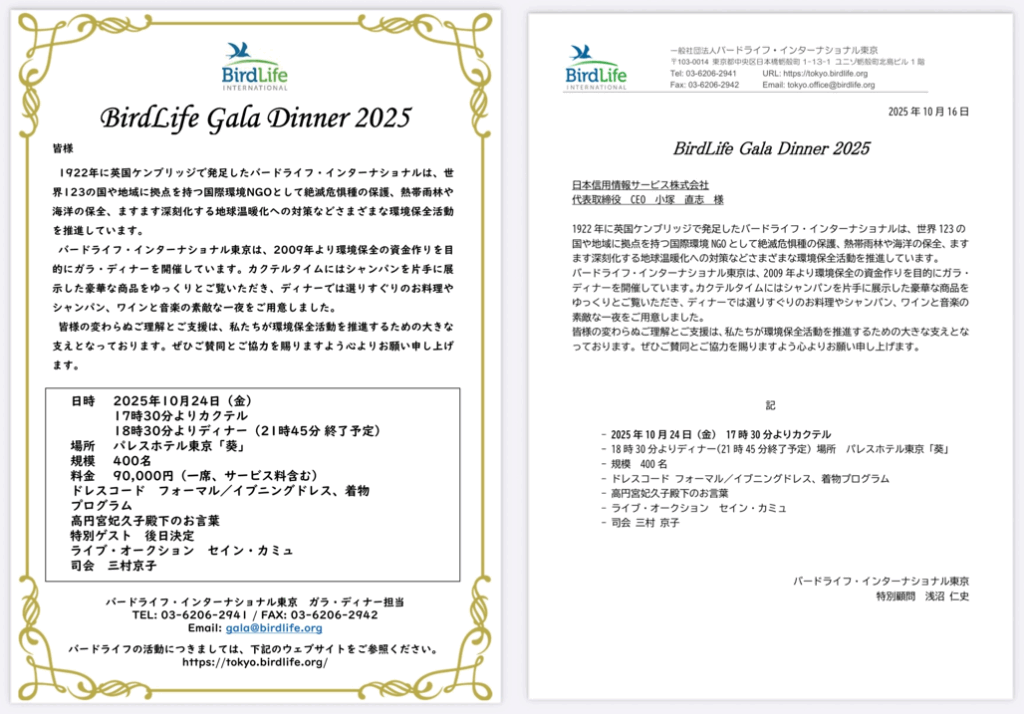 BirdLife
INTERNATIONAL
BirdLife Gala Dinner 2025
皆様
1922年に英国ケンブリッジで発足したバードライフ・インターナショナルは、世
界123の国や地域に拠点を持つ国際環境NGOとして絶滅危惧種の保護、熱帯雨林や
海洋の保全、ますます深刻化する地球温暖化への対策などさまざまな環境保全活動
を推進しています。
バードライフ・インターナショナル東京は、2009年より環境保全の資金作りを目
的にガラ・ディナーを開催しています。カクテルタイムにはシャンパンを片手に展
示した豪華な商品をゆっくりとご覧いただき、ディナーでは選りすぐりのお料理や
シャンパン、ワインと音楽の素敵な一夜をご用意しました。
皆様の変わらぬご理解とご支援は、私たちが環境保全活動を推進するための大きな
支えとなっております。ぜひご賛同とご協力を賜りますよう心よりお願い申し上げ
ます。
日時 2025年10月24日（金）
17時30分よりカクテル
18時30分よりディナー（21時45分 終了予定）
場所 パレスホテル東京「葵」
規模 400名
料金 90,000円（一席、サービス料含む）
ドレスコード フォーマル／イブニングドレス、着物
プログラム
高円宮妃久子殿下のお言葉
特別ゲスト 後日決定
ライブ・オークション セイン・カミュ
司会 三村京子
バードライフ・インターナショナル東京 ガラ・ディナー担当
TEL: 03-6206-2941 / FAX: 03-6206-2942
Email: gala@birdlife.org
バードライフの活動につきましては、下記のウェブサイトをご参照ください。
https://tokyo.birdlife.org/
BirdLife
INTERNATIONAL
一般社団法人バードライフ・インターナショナル東京
〒103-0014 東京都中央区日本橋蛎殻町 1-13-1 ユニゾ蛎殻町北島ビル 1 階
Tel: 03-6206-2941 URL: https://tokyo.birdlife.org
Fax: 03-6206-2942 Email: tokyo.office@birdlife.org
2025 年 10 月 16 日
BirdLife Gala Dinner 2025
日本信用情報サービス株式会社
代表取締役 CEO 小塚 直志 様
1922 年に英国ケンブリッジで発足したバードライフ・インターナショナルは、世界 123 の
国や地域に拠点を持つ国際環境 NGO として絶滅危惧種の保護、熱帯雨林や海洋の保全、ます
ます深刻化する地球温暖化への対策などさまざまな環境保全活動を推進しています。
バードライフ・インターナショナル東京は、2009 年より環境保全の資金作りを目的にガラ・
ディナーを開催しています。カクテルタイムにはシャンパンを片手に展示した豪華な商品を
ゆっくりとご覧いただき、ディナーでは選りすぐりのお料理やシャンパン、ワインと音楽の
素敵な一夜をご用意しました。
皆様の変わらぬご理解とご支援は、私たちが環境保全活動を推進するための大きな支えとな
っております。ぜひご賛同とご協力を賜りますよう心よりお願い申し上げます。
記
- 2025 年 10 月 24 日（金） 17 時 30 分よりカクテル
- 18 時 30 分よりディナー(21 時 45 分終了予定) 場所 パレスホテル東京「葵」
- 規模 400 名
- ドレスコード フォーマル／イブニングドレス、着物プログラム
- 高円宮妃久子殿下のお言葉
- ライブ・オークション セイン・カミュ
- 司会 三村 京子
バードライフ・インターナショナル東京
特別顧問 浅沼 仁史